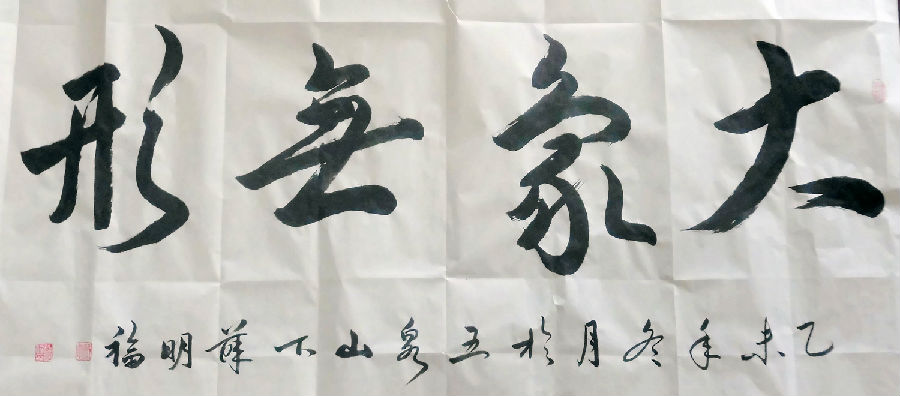 大象無形
乙未年冬月於五泉山下薛明福